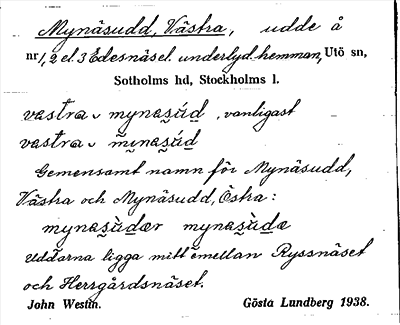 Mynäsudd, Västra, udde å
nr 1, 2 el. 3 Edesnäs el. underlyd. hemman, Utö sn,
Sotholms hd, Stockholms l.
västra ᴗ mynas̮úd̲, vanligast
västra ᴗ m̮ynas̮úd̲
Gemensamt namn för Mynäsudd,
Västra och Mynäsudd, Östra:
mynas̮ùd̲ær mynas̮ùd̲æ
Uddarna ligga mitt emellan Ryssnäset
och Herrgårdsnäset.
John Westin. Gösta Lundberg 1938.